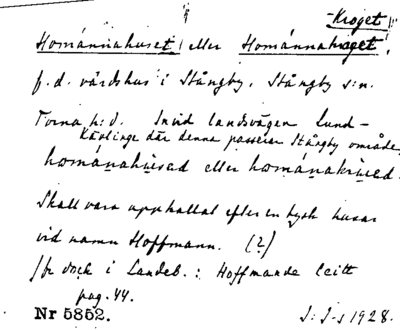 -Kroget
Homànnahuset, eller Homànnakroget,
f.d. värdshus i Stångby, Stångby s:n.
Torna h:d. Invid landsvägen Lund-
Kävlinge där denna passerar Stångby område
homànahused eller homànakrused.
Skall vara uppkallat efter en tysk husar
vid namn Hoffmann. (?)
Jfr dock i Landeb.: Hoffmande leitt
pag. 44.
Nr 5852. 1928.